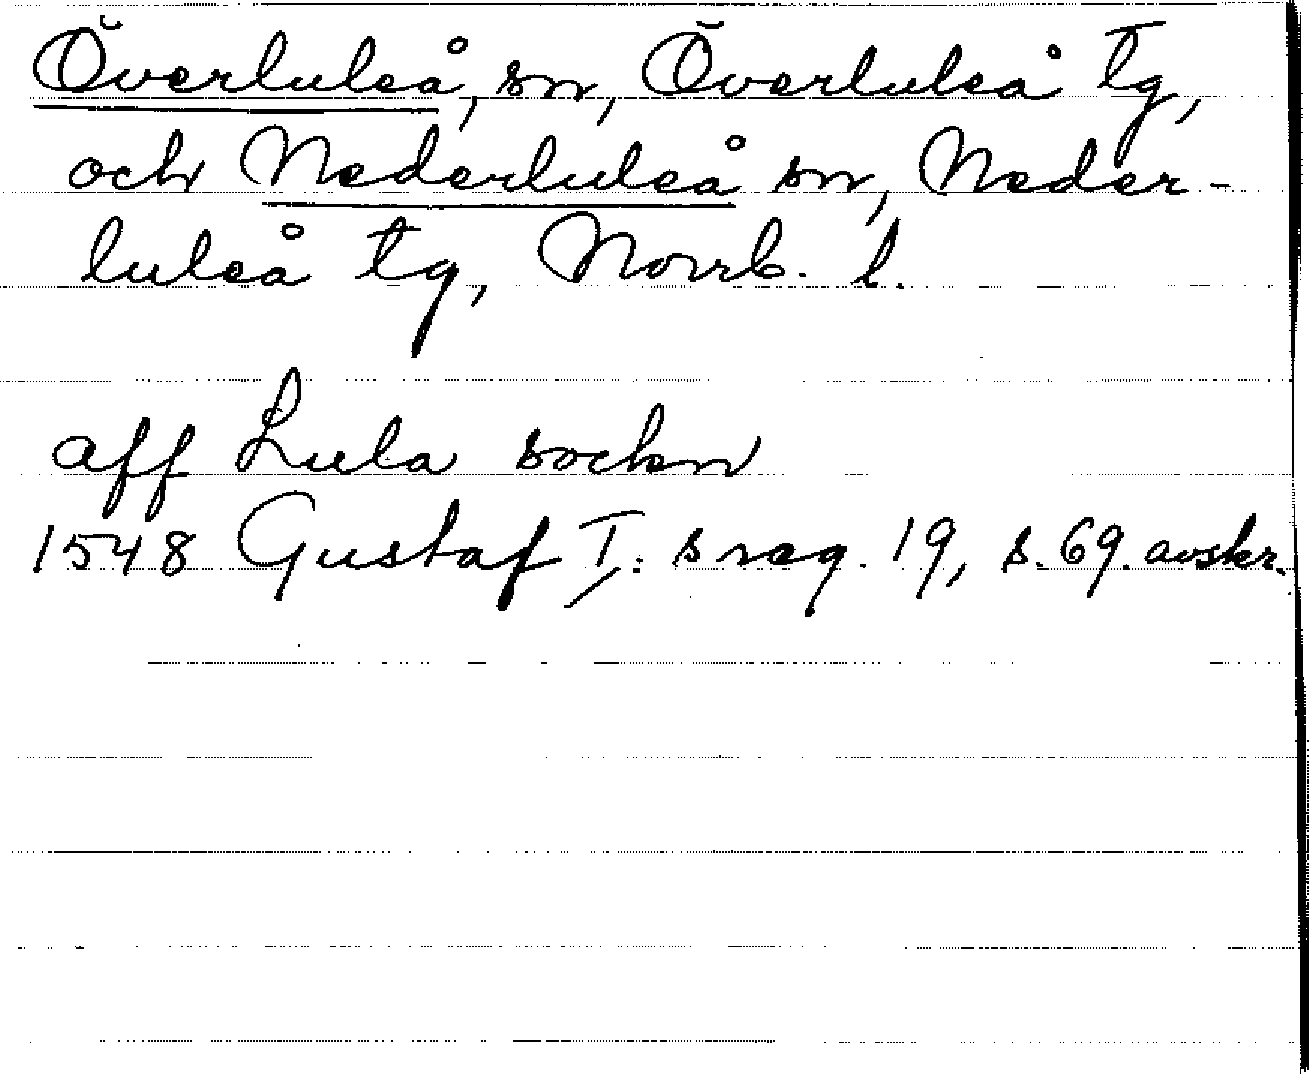 Överluleå, sn, Överluleå tg,
och Nederluleå sn, Neder-
luleå tg, Norrb. l.
aff Lula sockn
1548 Gustaf I:s reg. 19, s. 69. avskr.